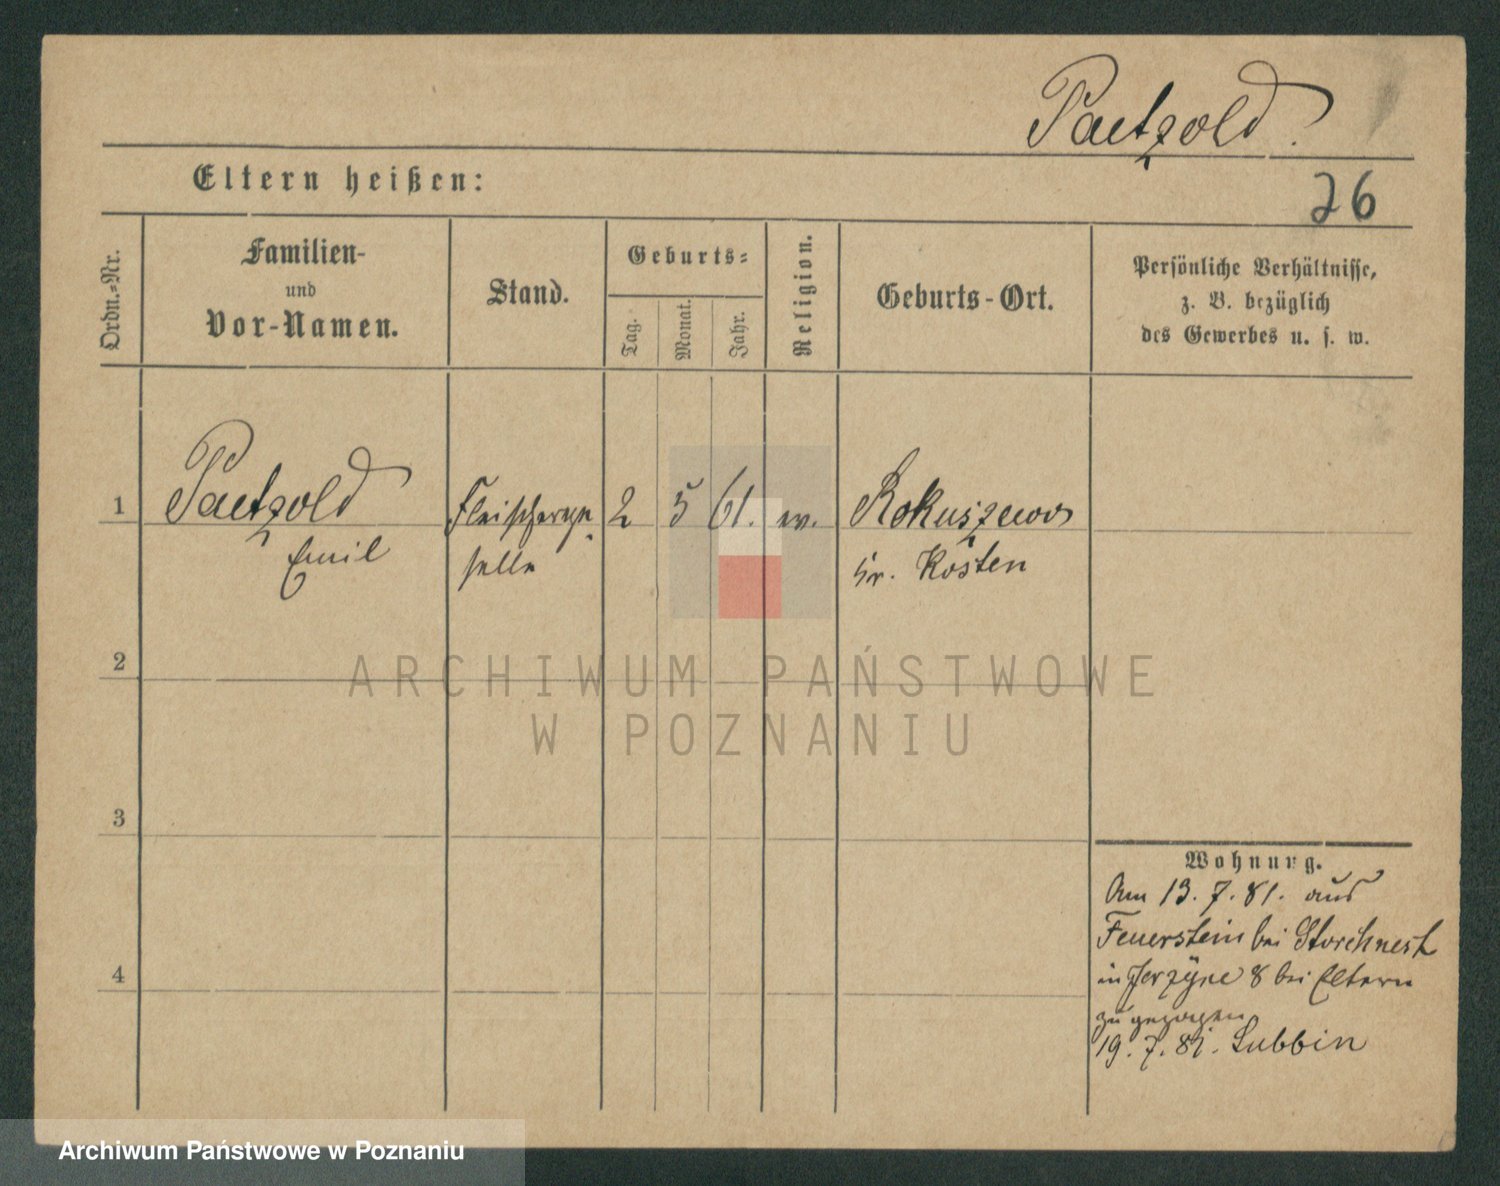 Paetzold.
Eltern heißen:
26
Ordn.-Nr.
Familien-
und
Vor-Namen.
Stand.
Geburts-
Tag.
Monat.
Jahr.
Religion.
Geburts-Ort.
Persönliche Verhältnisse,
z. B. bezüglich
des Gewerbes u. s. w.
1 Paetzold Fleischerge 2 5 61. ev. Rokuszewo
Emil selle Kr. Kosten
2
3
4
Wohnung.
Am 13. 7. 81. aus
Feuerstein bei Storchnest
in Jerzyce 8 bei Eltern
zugezogen
19. 7. 81. Lubbin
ARCHIWUM PAŃSTWOWE
W POZNANIU
Archiwum Państwowe w Poznaniu